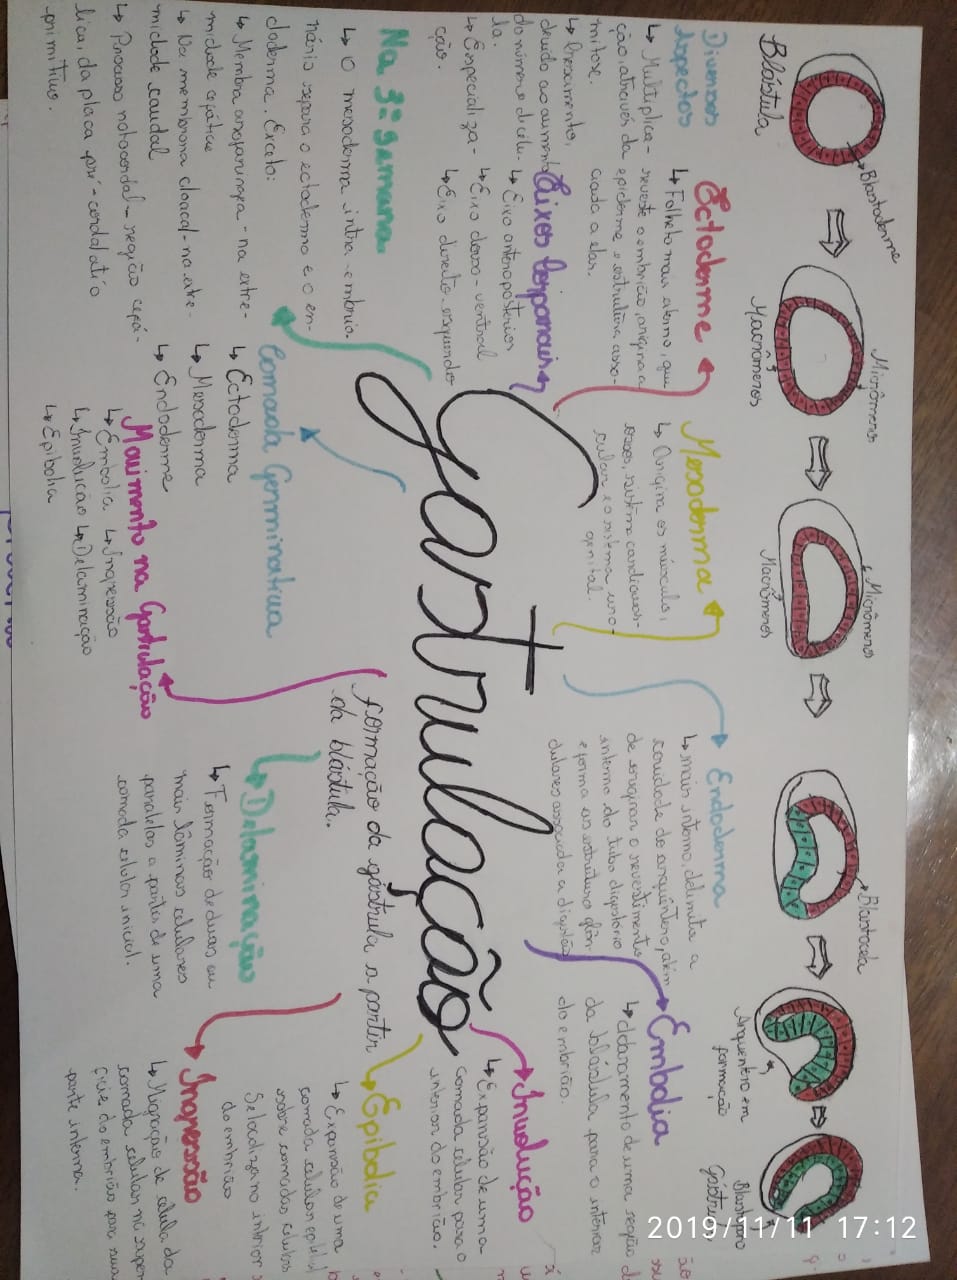 Blástula
Blastoderme
Micrômeros
Macrômeros
Micrômeros
Macrômeros
Blastocela
Arquêntero em
formação
Blastóporo
Diversos
Aspectos
↳ Multiplica-
ção, através da
mitose.
↳ Crescimento,
devido ao aumento
do número de célu-
la.
↳ Especializa-
ção.
Ectoderme
↳ Folheto mais externo, que
reveste o embrião, origina a
epiderme e estrutura asso-
ciada a elas.
Eixos Corporais
↳ Eixo anteroposterior
↳ Eixo dorso-ventral
↳ Eixo direito-esquerdo
Mesoderma
↳ Origina os músculos,
ossos, sistema cardiovas-
cular e o sistema uro-
genital.
Endoderma
↳ mais interno, delimita a
cavidade do arquêntero, além
de originar o revestimento
interno do tubo digestório
e forma as estruturas glân-
dulares associada a digestão
Embolia
↳ dobramento de uma região
da blástula para o interior
do embrião.
Gastrulação
formação da gástrula a partir
da blástula.
Involução
↳ Expansão de uma
camada celular para o
interior do embrião.
Epibolia
↳ Expansão de uma
camada celular
sobre camadas celulares
Se localiza no interior
do embrião
Na 3ª Semana
↳ O mesoderma intra-embrio-
nário separa o ectoderma e o en-
doderma. Exceto:
↳ Membrana orofaríngea - na extre-
midade cefálica
↳ Na membrana cloacal - na extre-
midade caudal
↳ Processo notocordal - região cefá-
lica, da placa pré-cordal até o
primitivo.
Camada Germinativa
↳ Ectoderma
↳ Mesoderma
↳ Endoderme
Movimento na Gastrulação
↳ Embolia ↳ Ingressão
↳ Involução ↳ Delaminação
↳ Epibolia
Delaminação
↳ Formação de duas ou
mais lâminas celulares
paralelas a partir de uma
camada celular inicial.
Ingressão
↳ Migração de célula da
camada celular na super-
fície do embrião para sua
parte interna.
2019/11/11 17:12